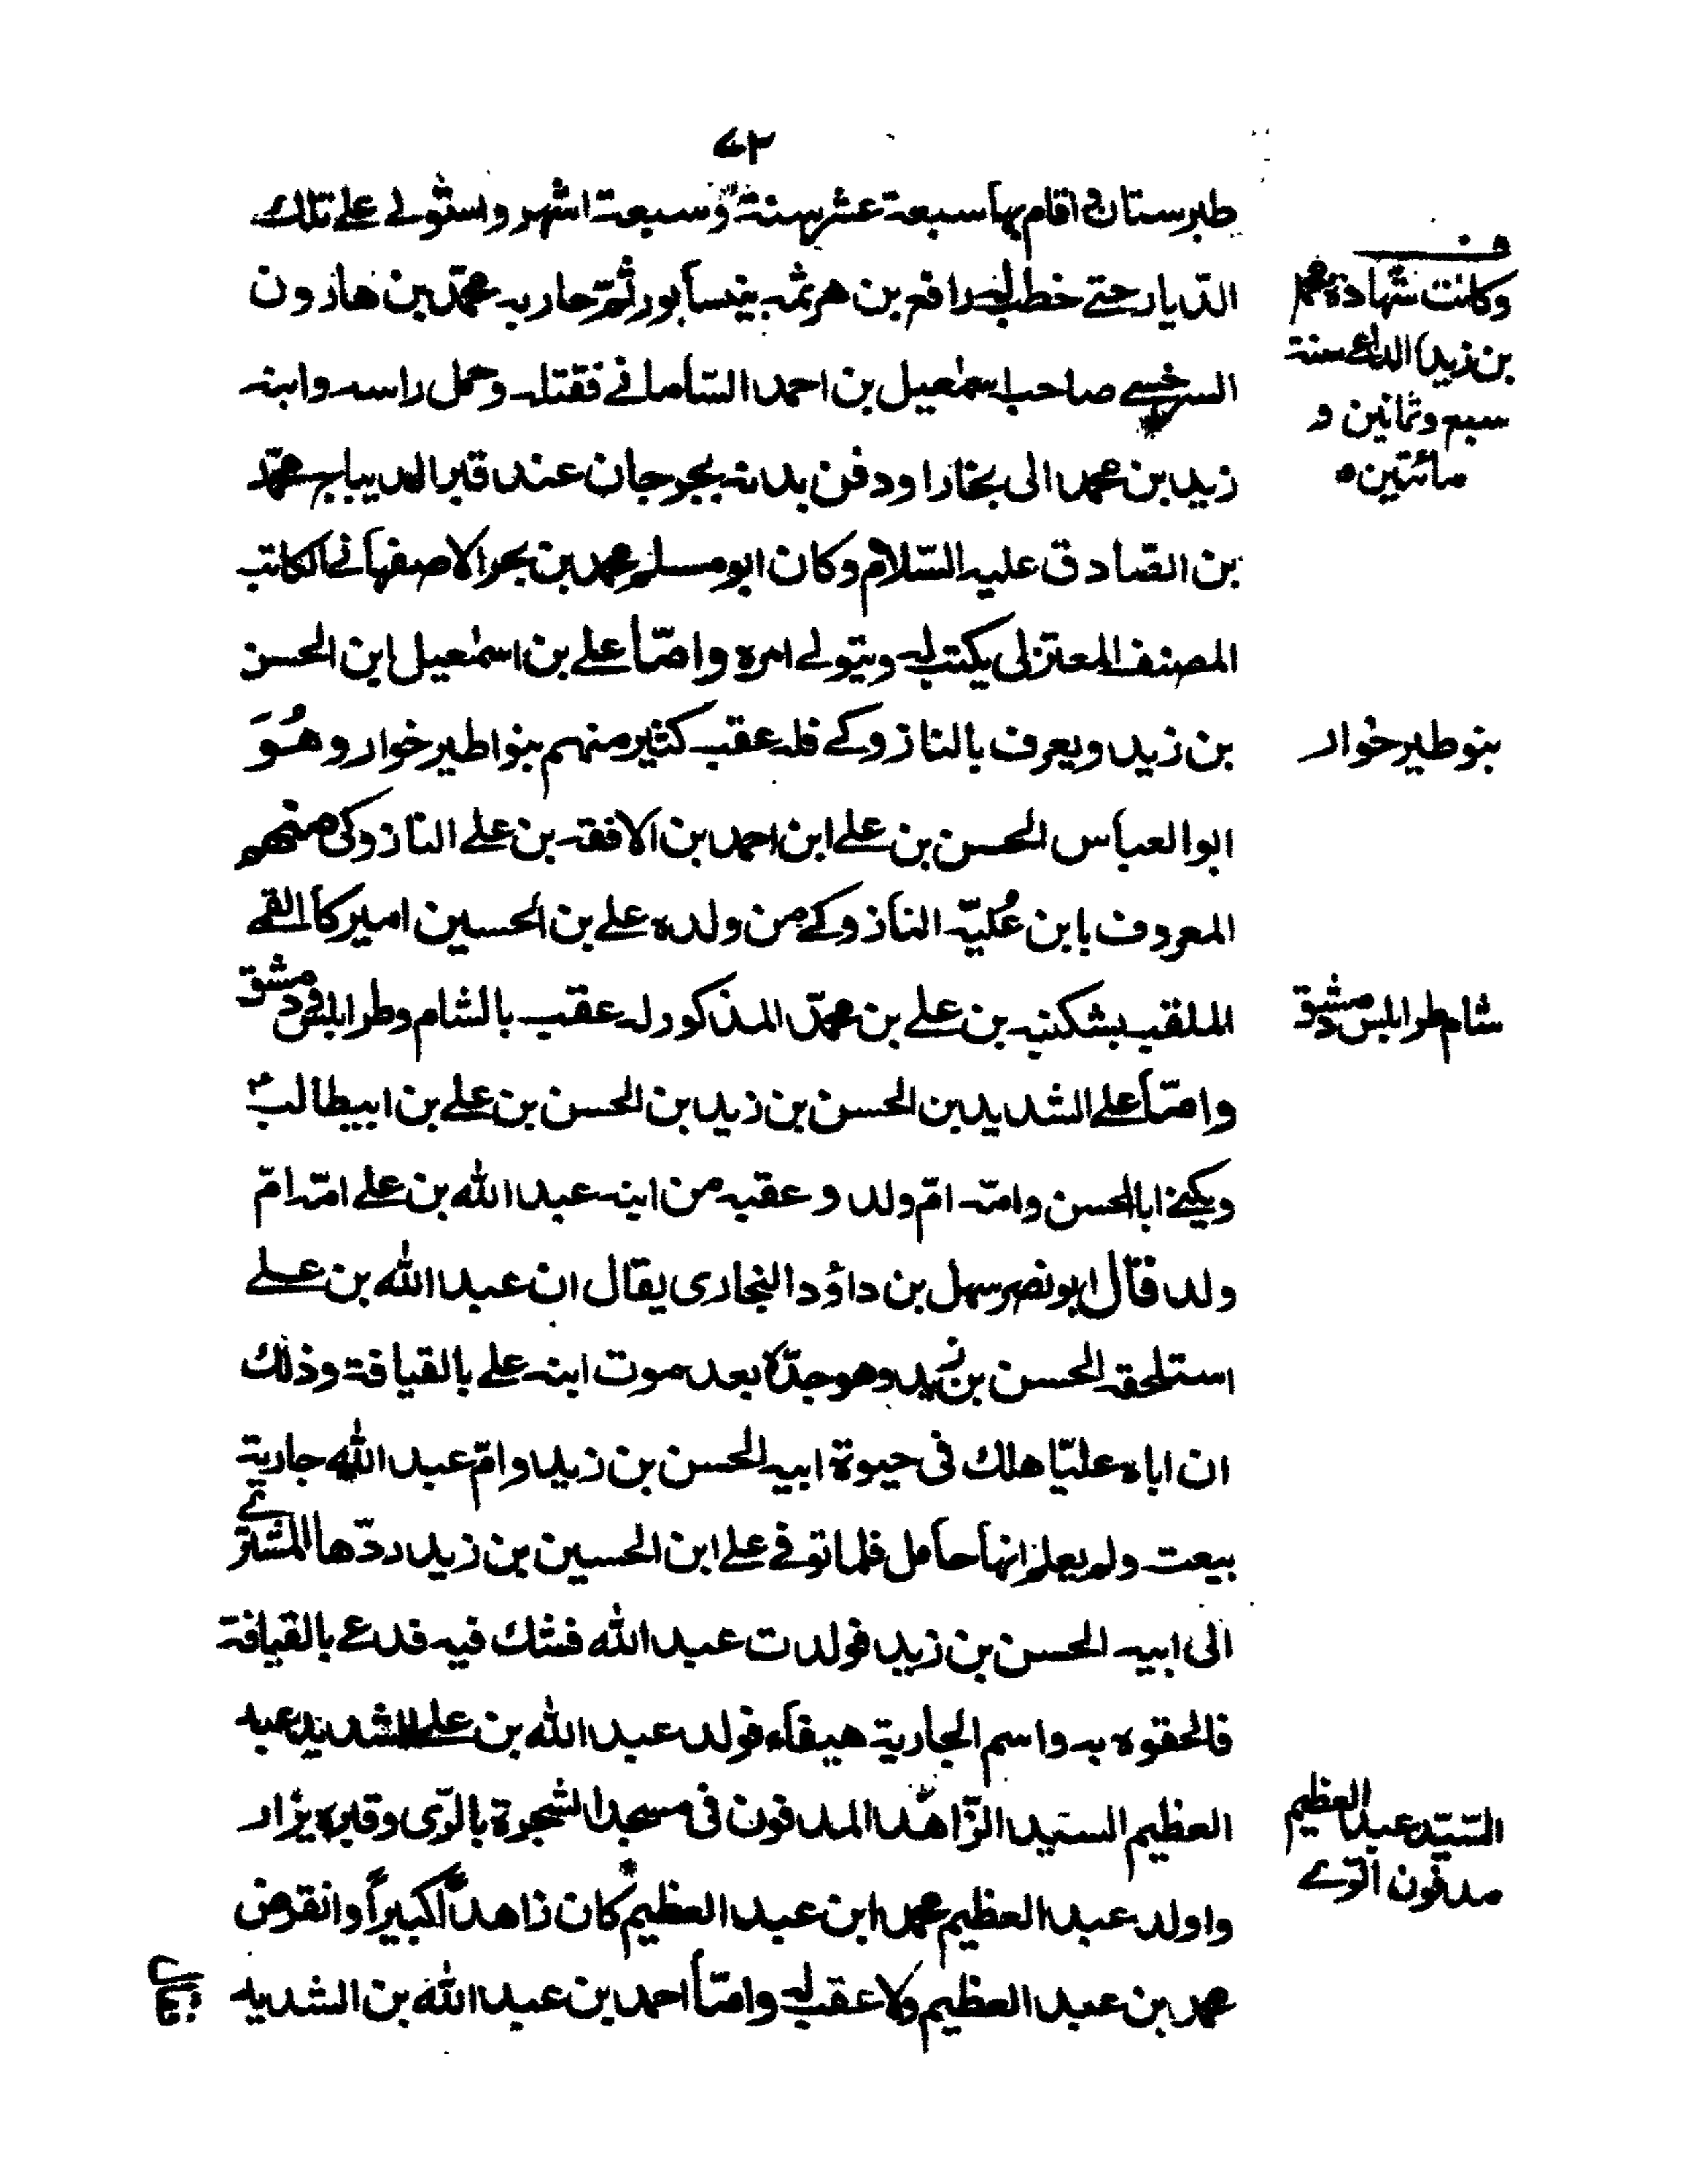 ٧٢
طبرستان اقام بها سبعة عشر سنة وسبعة اشهر واستولے علے تلك
الديار حتے خطب له رافع بن هرثمه بنيسابور ثمّ حاربه محمّد بن هارون
السرخسے صاحب اسمٰعيل بن احمد السّامانے فقتله وحمل راسه وابنه
زيد بن محمد الى بخارا ودفن بدنه بجرجان عند قبر الديباج محمّد
بن الصّادق عليه السّلام وكان ابو مسلم محمد بن بحر الاصفهانے الكاتب
المصنف المعتزلى يكتب له ويتولے امره وامّا علے بن اسمٰعيل ابن الحسن
بن زيد ويعرف بالنازوكے فله عقب كثير منهم بنوا طير خوار وهُوَ
ابو العباس الحسن بن علے ابن احمد بن الافقه بن علے النازوكى منهم
المعروف بابن عُليّه النازوكے من ولده علے بن الحسين اميركا القمے
الملقب بشكنبه بن علے بن محمّد المذكور له عقب بالشام وطرابلس ودمشق
وامّا علے الشديد بن الحسن بن زيد بن الحسن بن علے بن ابيطالب ؑ
ويكنے ابا الحسن وامّه امّ ولد وعقبه من ابنه عبد الله بن علے امّه امّ
ولد قال ابو نصر سهل بن داؤد النجارى يقال ان عبد الله بن علے
استلحقه الحسن بن زيد وهو جدّه بعد موت ابنه علے بالقيافة وذلك
ان اباه عليّا هلك فى حيوة ابيه الحسن بن زيد وامّ عبد الله جارية
بيعت ولم يعلم انها حامل فلما توفے علے ابن الحسين بن زيد ردّها المشترے
الى ابيه الحسن بن زيد فولدت عبد الله فشك فيه فدعے بالقيافة
فالحقوه به واسم الجارية هيفاء فولد عبد الله بن علے الشديد عبد
العظيم السيد الزّاهد المدفون فى مسجد الشجرة بالرّى وقبره يزار
واولد عبد العظيم محمد ابن عبد العظيم كان زاهداً كبيراً وانقرض
محمد بن عبد العظيم ولا عقب له وامّا احمد بن عبد الله بن الشديد
وكانت شهادة محمد
بن زيد الداعے سنة
سبع وثمانين و
مائتين ه
بنو طير خوار
شام طرابلس دمشق
السّيد عبد العظيم
مدفون الرّے